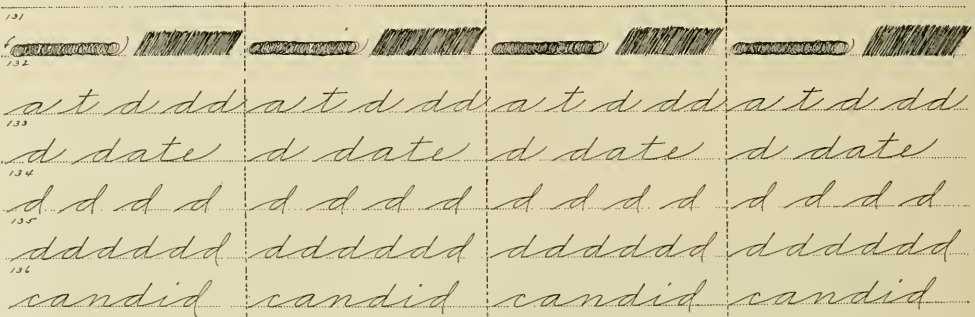 131
132
a t d dd a t d dd a t d dd a t d dd
133
d date d date d date d date
134
d d d d d d d d d d d d d d d d
135
dddddd dddddd dddddd dddddd
136
candid candid candid candid